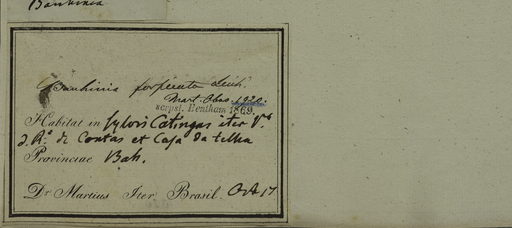 Bauhinia
Bauhinia forficata Link.
Mart. Obs. 1920.
scrpsl. Bentham 1869.
Habitat in sylvis Catingas iter V.
d. R.º de Contas et Casa da telha
Provinciae Bah.
Dr Martius Iter Brasil. Oct 17